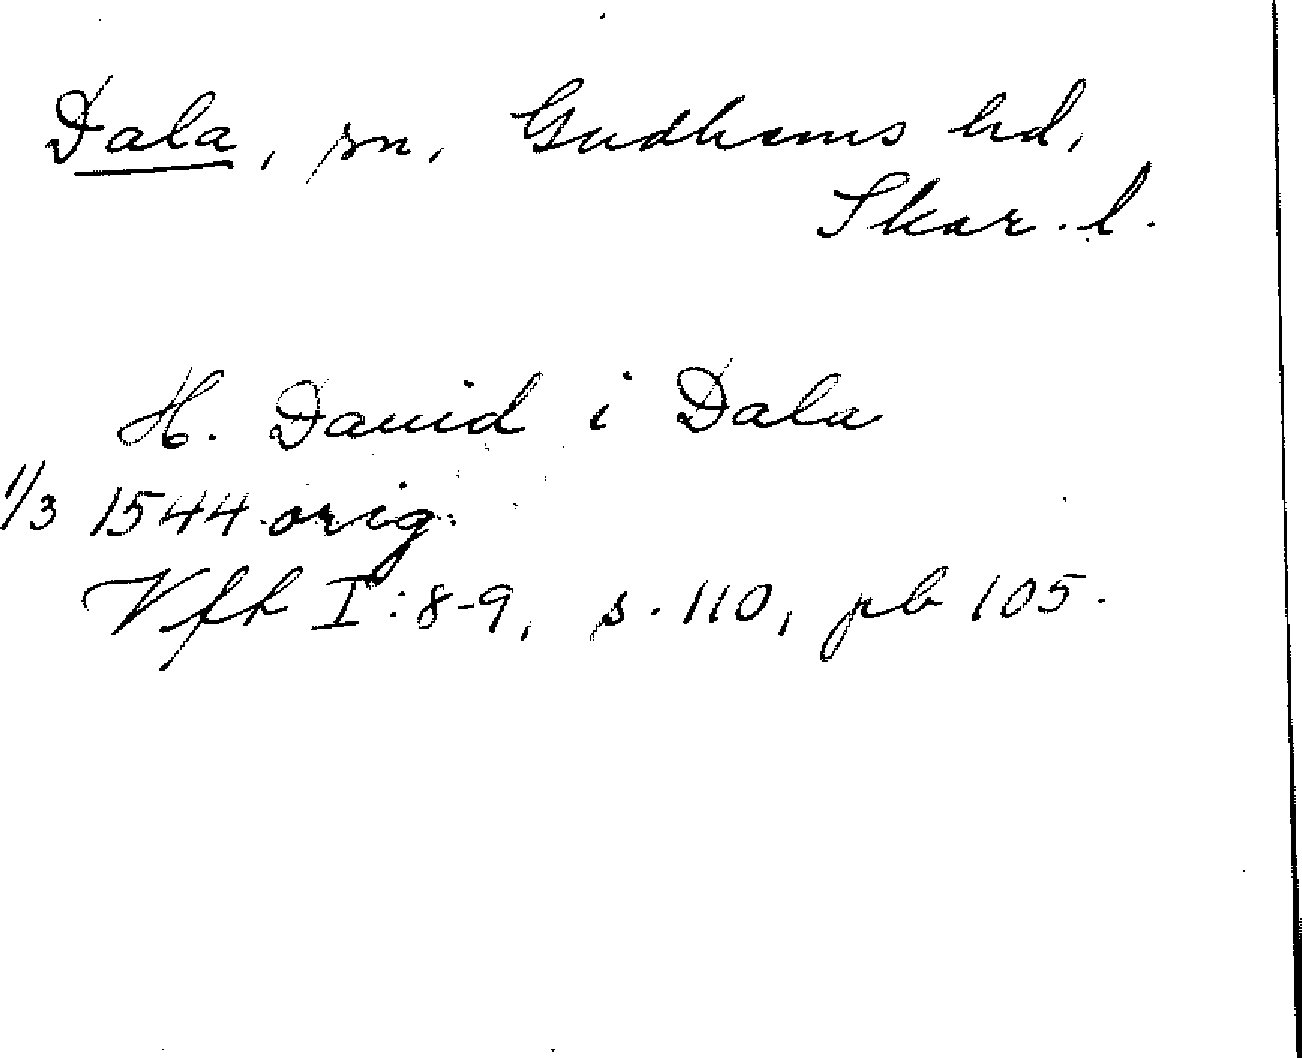 Dala, sn, Gudhems hd,
Skar. l.
H. Dauid i Dala
1/3 1544 orig.
Vfft I:8-9, s. 110, pb 105.